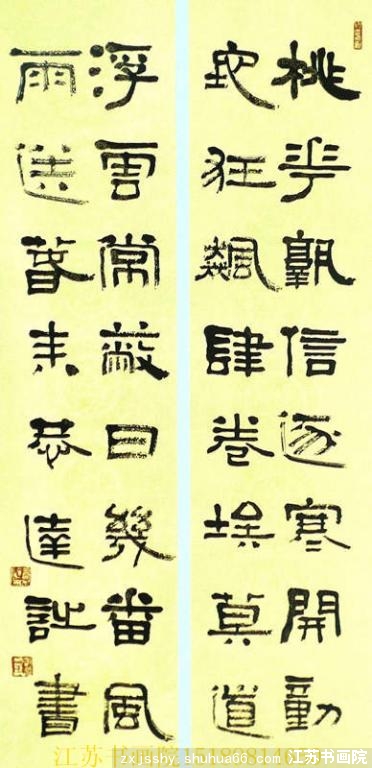 桃花信逐寒開動
地狂飆肆卷埃莫道
浮雲常蔽日幾番風
雨送春來恭達書
江苏书画院
zxjsshy.shuhua66.com 江苏书画院